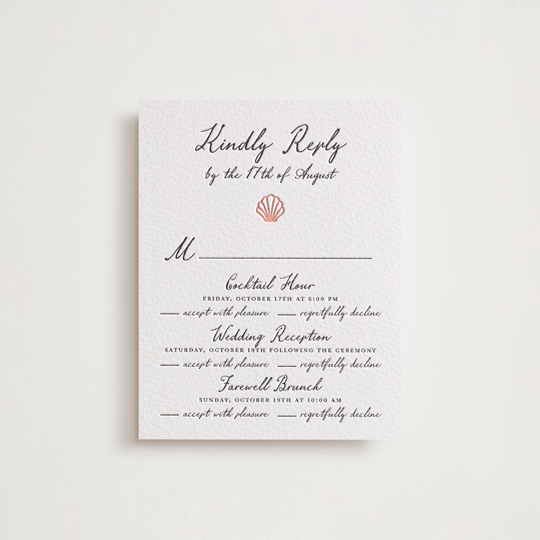 Kindly Reply
by the 17th of August
M
Cocktail Hour
FRIDAY, OCTOBER 17TH AT 6:00 PM
accept with pleasure regretfully decline
Wedding Reception
SATURDAY, OCTOBER 18TH FOLLOWING THE CEREMONY
accept with pleasure regretfully decline
Farewell Brunch
SUNDAY, OCTOBER 19TH AT 10:00 AM
accept with pleasure regretfully decline